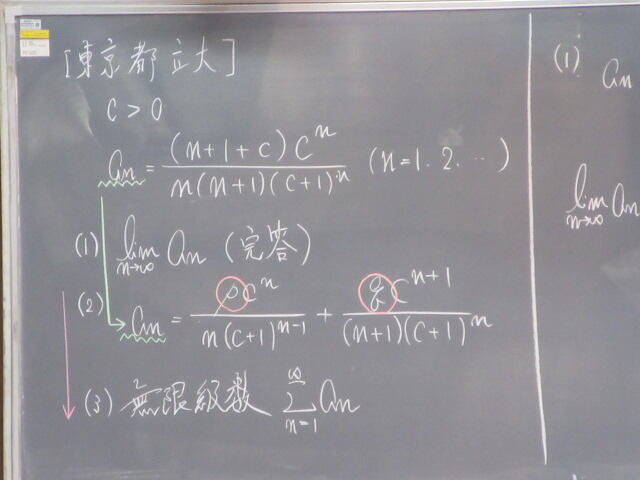 [東京都立大]
c > 0
an = (n+1+c)c^n / n(n+1)(c+1)^n (n=1.2.…)
(1) lim n→∞ an (完答)
(2) an = pc^n / n(c+1)^{n-1} + qc^{n+1} / (n+1)(c+1)^n
(3) 無限級数 ∞ Σ n=1 an
(1) an
lim n→∞ an